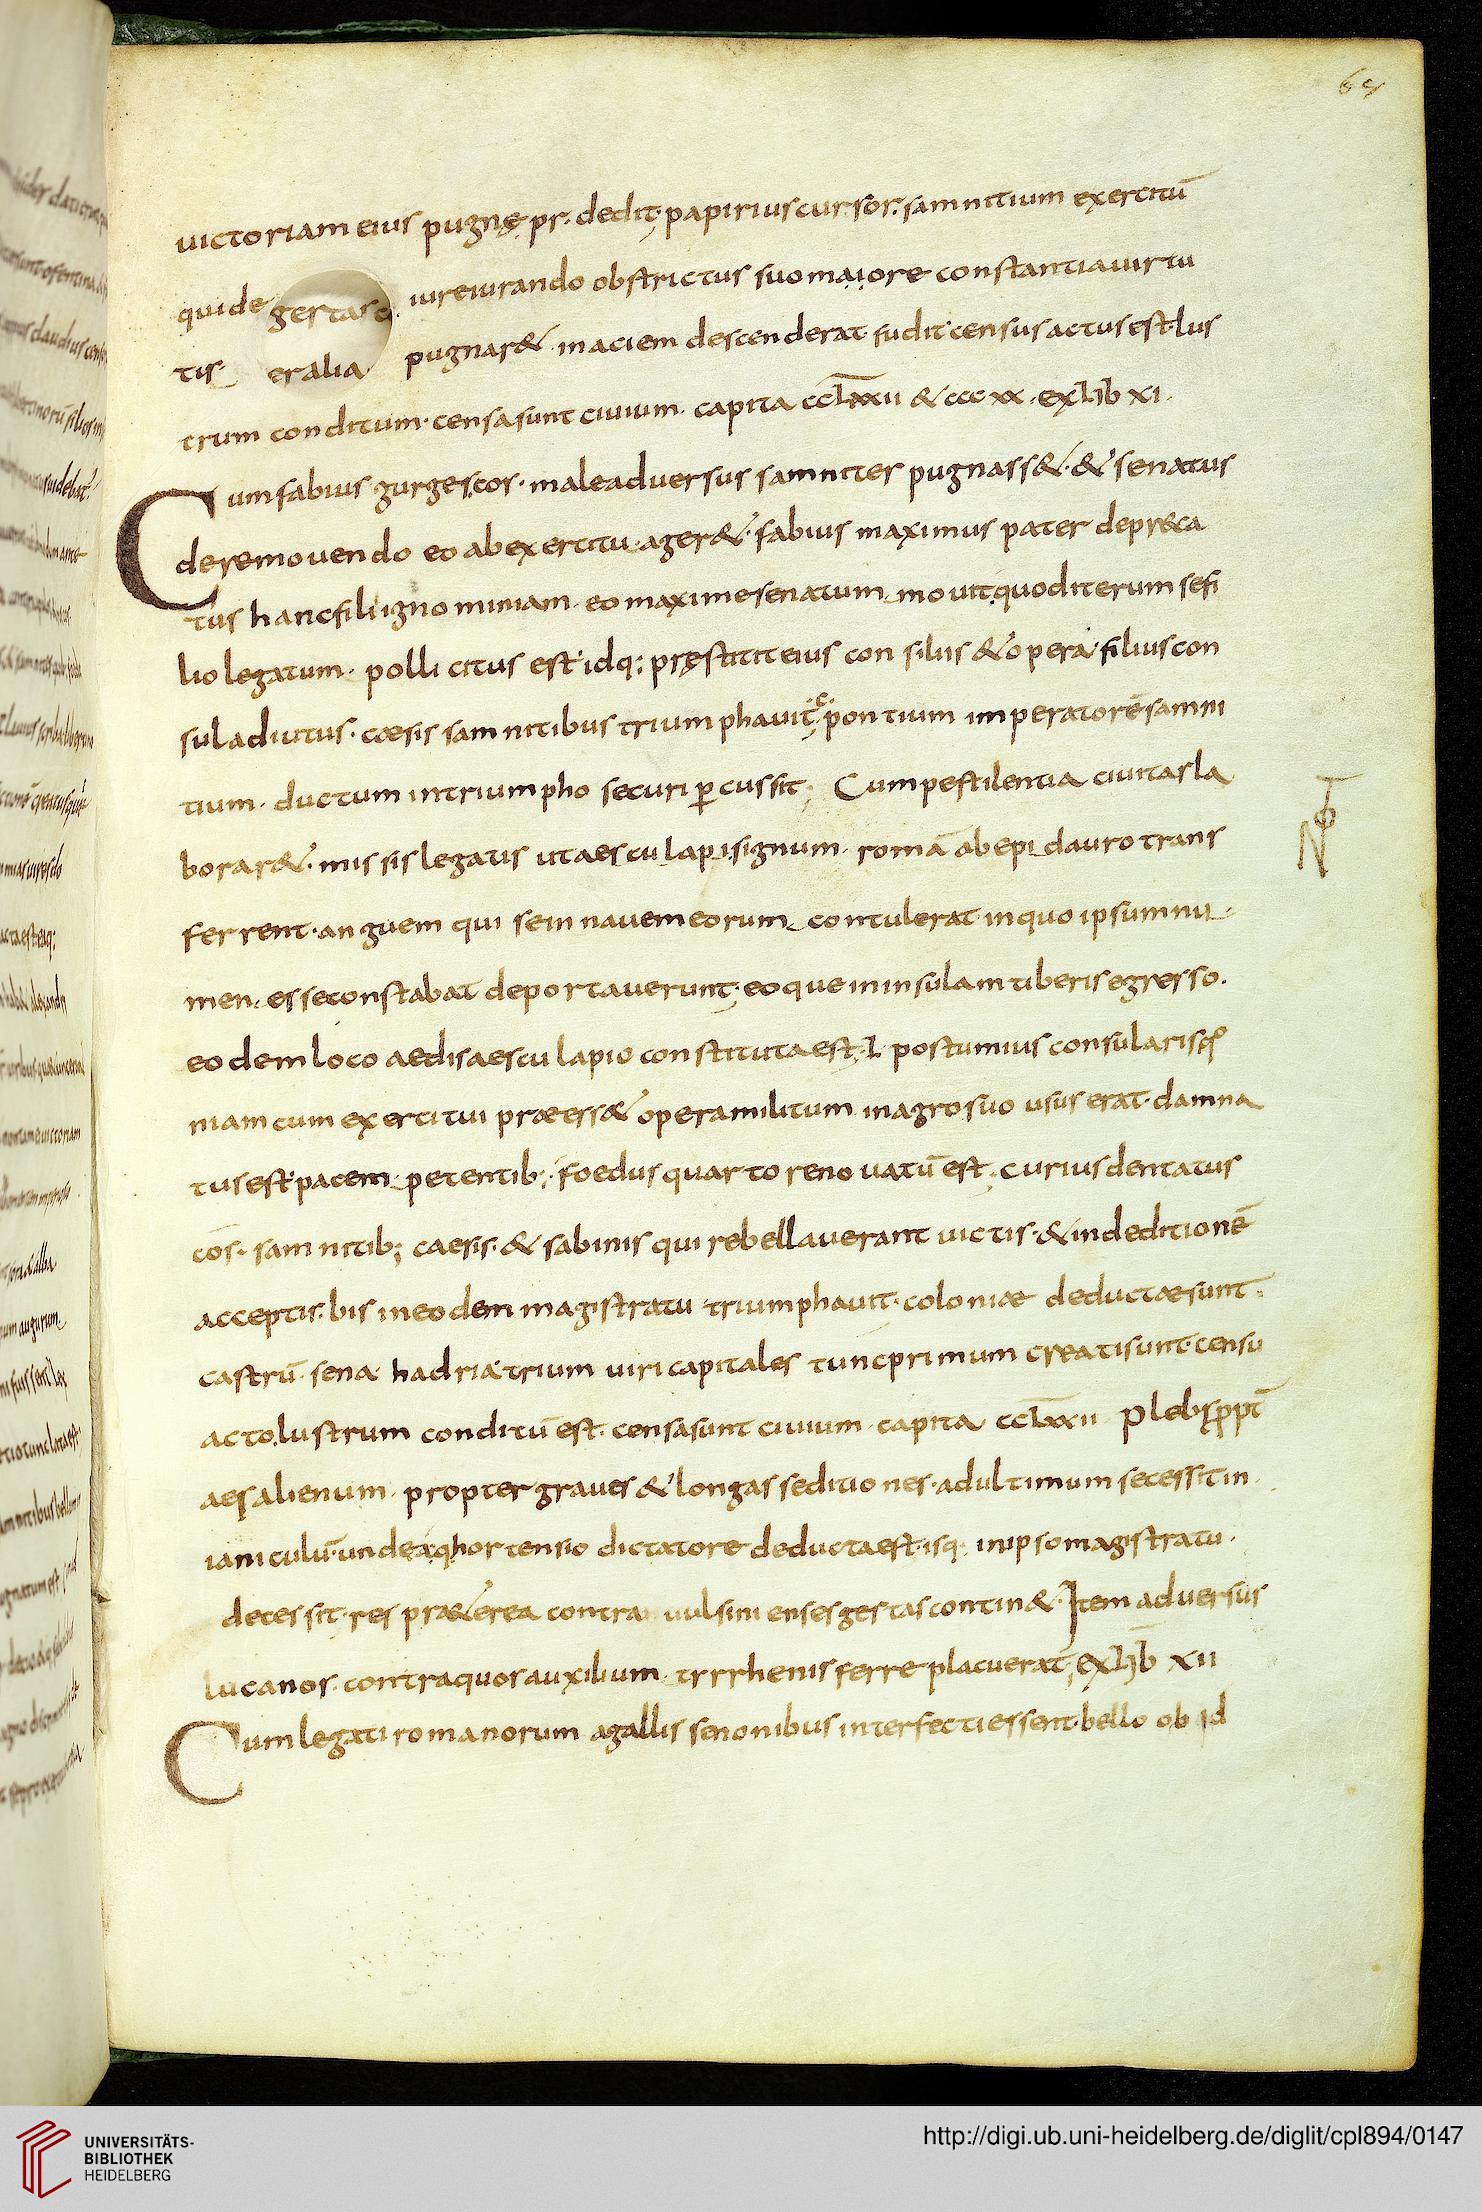 64
uictoriam eius pugnę pr. dedit; papirius cursor. samnitium exercitū
qui de gestas c. iureiurando obstrictus suo maiore constantia uirtu
tis eralia pugnar& in aciem descenderat fudit census actus est lus
trum conditum. censa sunt ciuium. capita cclxxii & ccc xx. ex lib xi.
Cum fabius gurges cos. male aduersus samnites pugnass&. & senatus
de remouendo eo ab exercitu. ager&. fabius maximus pater depreca
tus hanc filii ignominiam. eo maxime senatum. mouit quod iterum se fi
lio legatum. pollicitus est idq; pręstitit eius consiliis & opera filius con
sul adiutus. caesis samnitibus triumphauit; c. pontium imperatorē samni
tium. ductum in triumpho securi p̄cussit; Cum pestilentia ciuitas la
borar&. missis legatis ut aesculapi signum. romā ab epidauro trans
ferrent. anguem qui se in nauem eorum contulerat in quo ipsum nu
men. esse constabat deportauerunt; eoque in insulam tiberis egresso.
eodem loco aedis aesculapio constituta est; L postumius consularis qō
niam cum exercitui praeess& opera militum in agro suo usus erat. damna
tus est pacem petentib; foedus quarto renouatū est; curius dentatus
cōs. samnitib; caesis. & sabinis qui rebellauerant uictis. & in deditionē
acceptis. bis in eodem magistratu triumphauit. coloniae deductae sunt.
castrū. sena hadria trium uiri capitales tunc primum creati sunt. censu
acto. lustrum conditū est. censa sunt ciuium capita cclxxii Plebs p̄pt̄
aes alienum. propter graues & longas seditiones. ad ultimum secessit in
ianiculū. unde a q hortensio dictatore deducta est. isq. in ipso magistratu.
decessit. res praeterea contra uulsinienses gestas contin&. Item aduersus
lucanos. contra quos auxilium trrrhenis ferre placuerat; ex lib xii
Cum legati romanorum a gallis senonibus interfecti essent. bello ob id
UNIVERSITÄTS-
BIBLIOTHEK
HEIDELBERG
http://digi.ub.uni-heidelberg.de/diglit/cpl894/0147